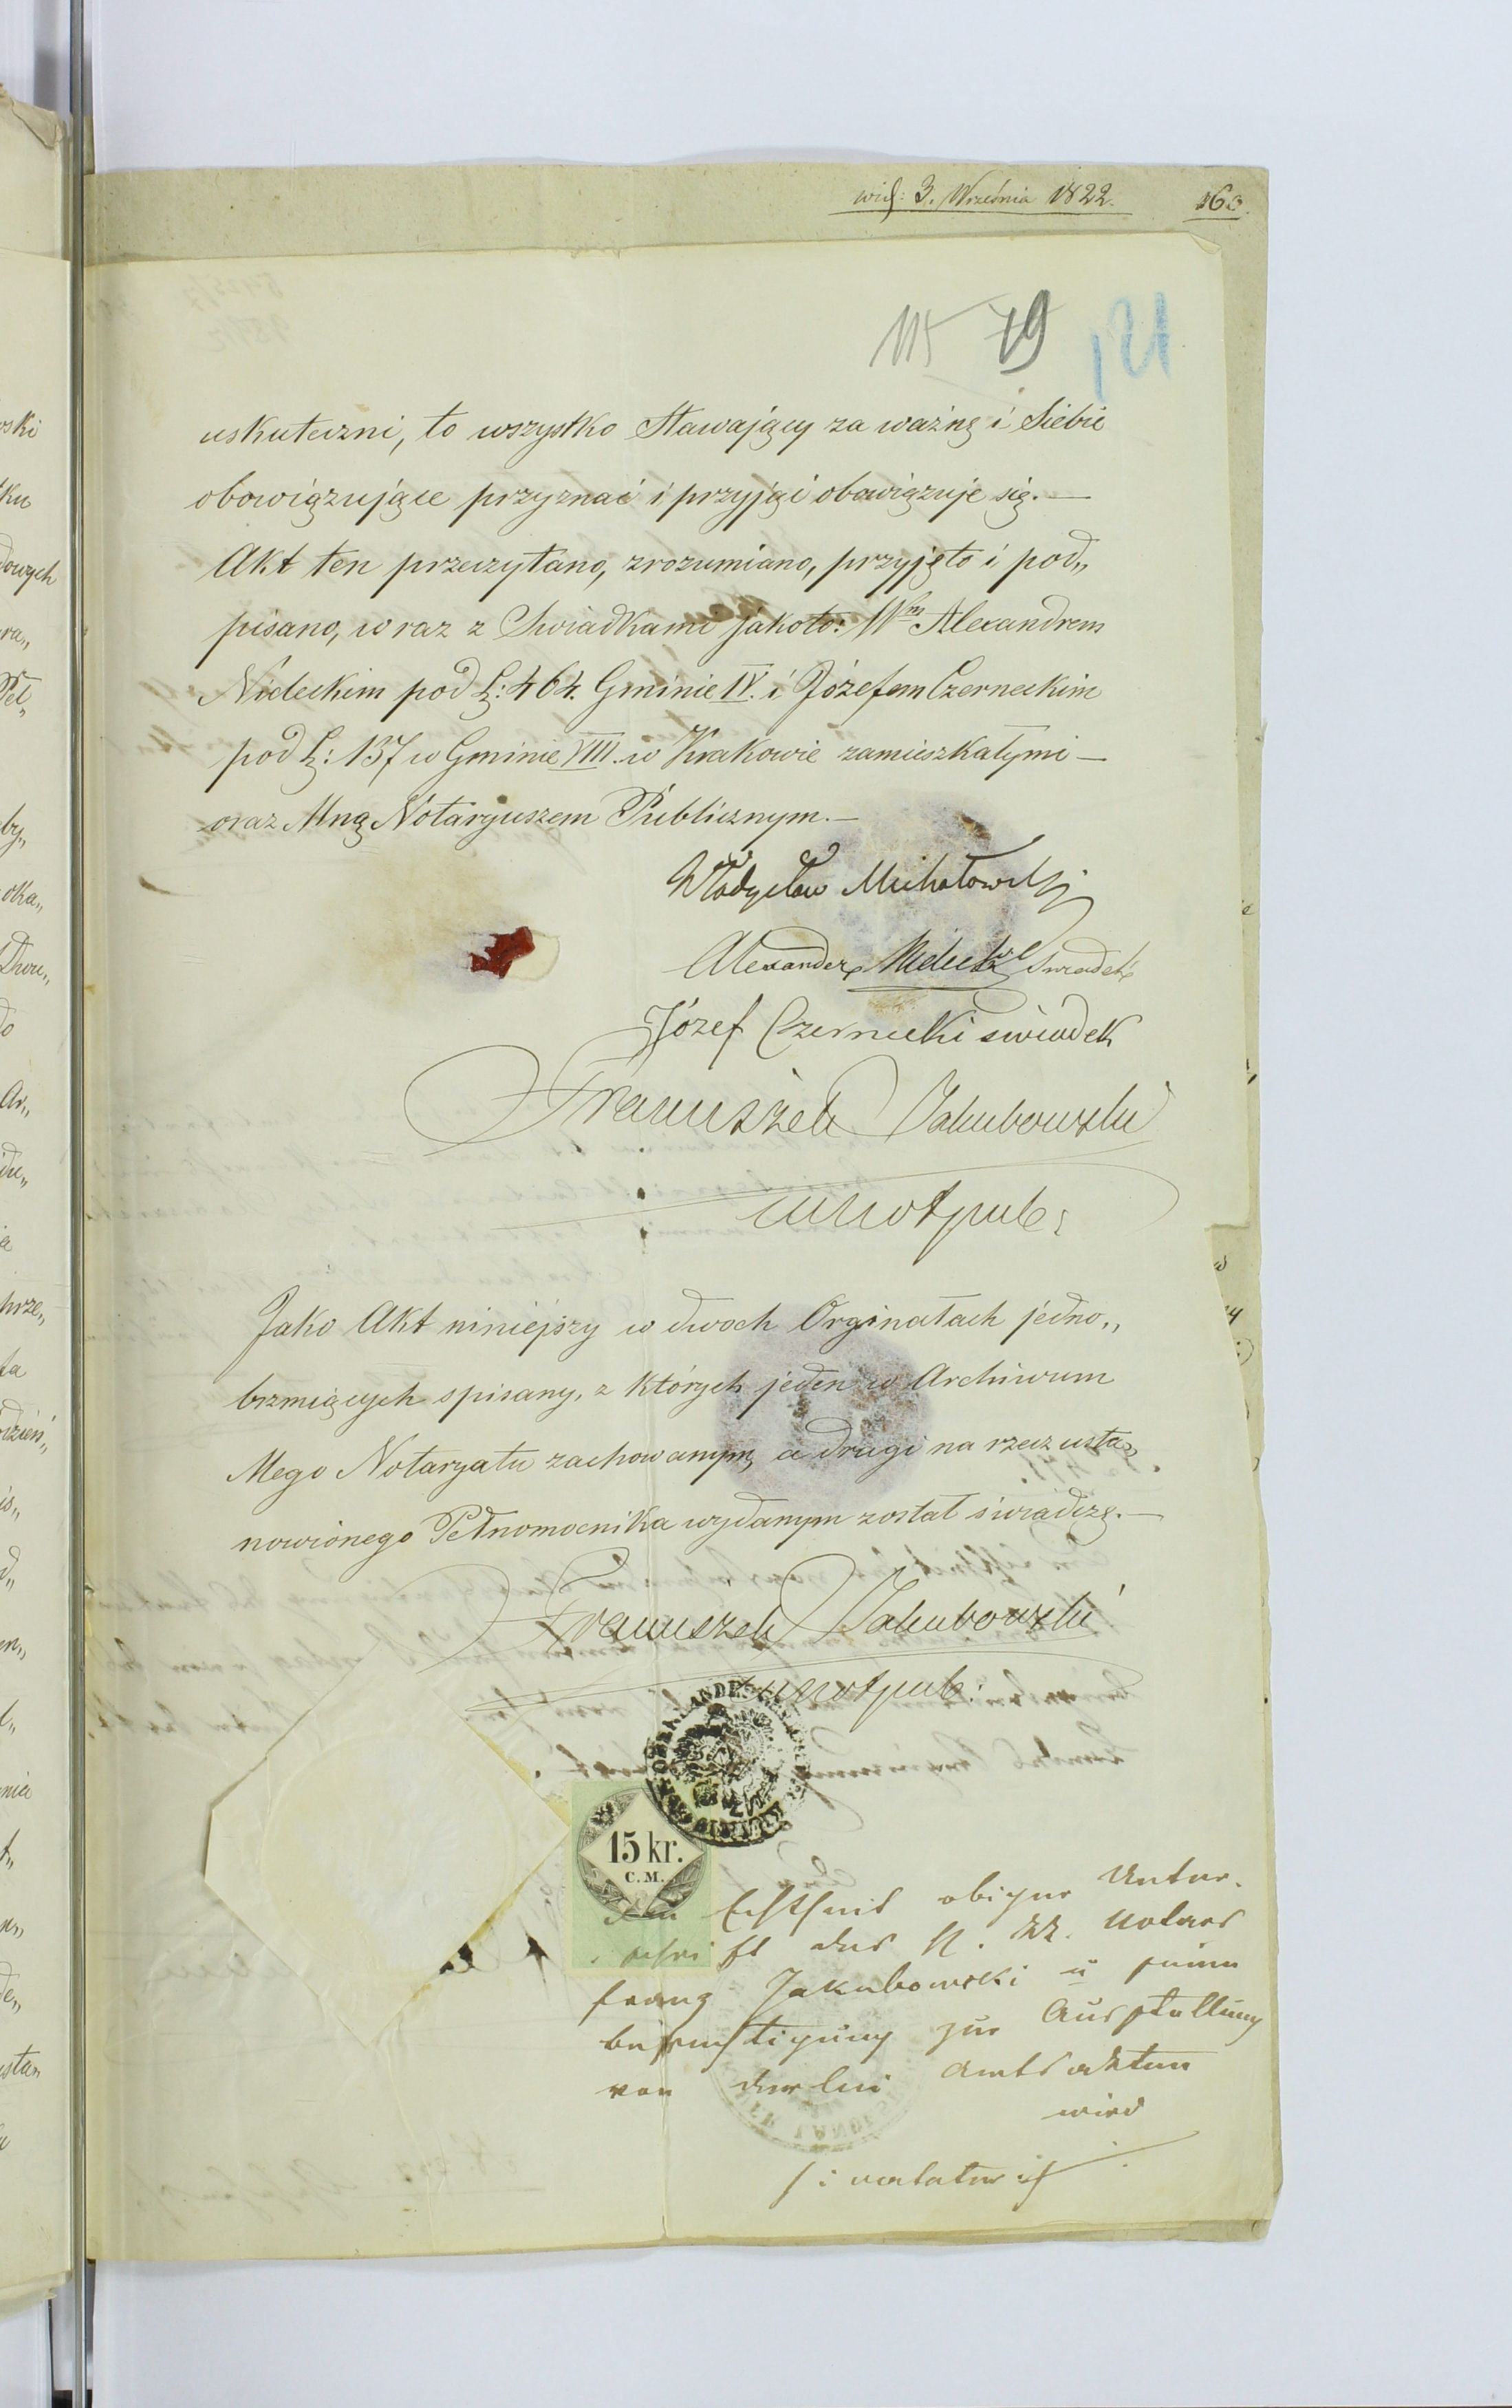 wid: 3. Września 1822.
163.
115 79 121
uskuteczni, to wszystko Stawający za ważne i Siebie
obowiązujące przyznać i przyjąć obowiązuje się. —
Akt ten przeczytano, zrozumiano, przyjęto i pod„
pisano, wraz z Swiadkami jakoto: Wm Alexandrem
Nideckim pod L: 464. Gminie IV. i Józefem Czerneckim
pod L: 137 w Gminie VIII. w Krakowie zamieszkałymi —
oraz Mną Notaryuszem Publicznym. —
Władysław Michałowski
Alexander Nidecki Swiadek
Józef Czernecki swiadek
Franciszek Jakubowski
Jako Akt niniejszy w dwoch Orginałach jedno„
brzmiących spisany, z których jeden w Archiwum
Mego Notaryatu zachowanym, a drugi na rzecz usta„
nowionego Pełnomocnika wydanym został świadczę. —
Franciszek Jakubowski
15 kr.
C.M.
Die Echtheit obiger Unter-
schrift des H. kk. Notars
Franz Jakubowski u seiner
berechtigung zur Ausstellung
von derlei Amtsakten
wird